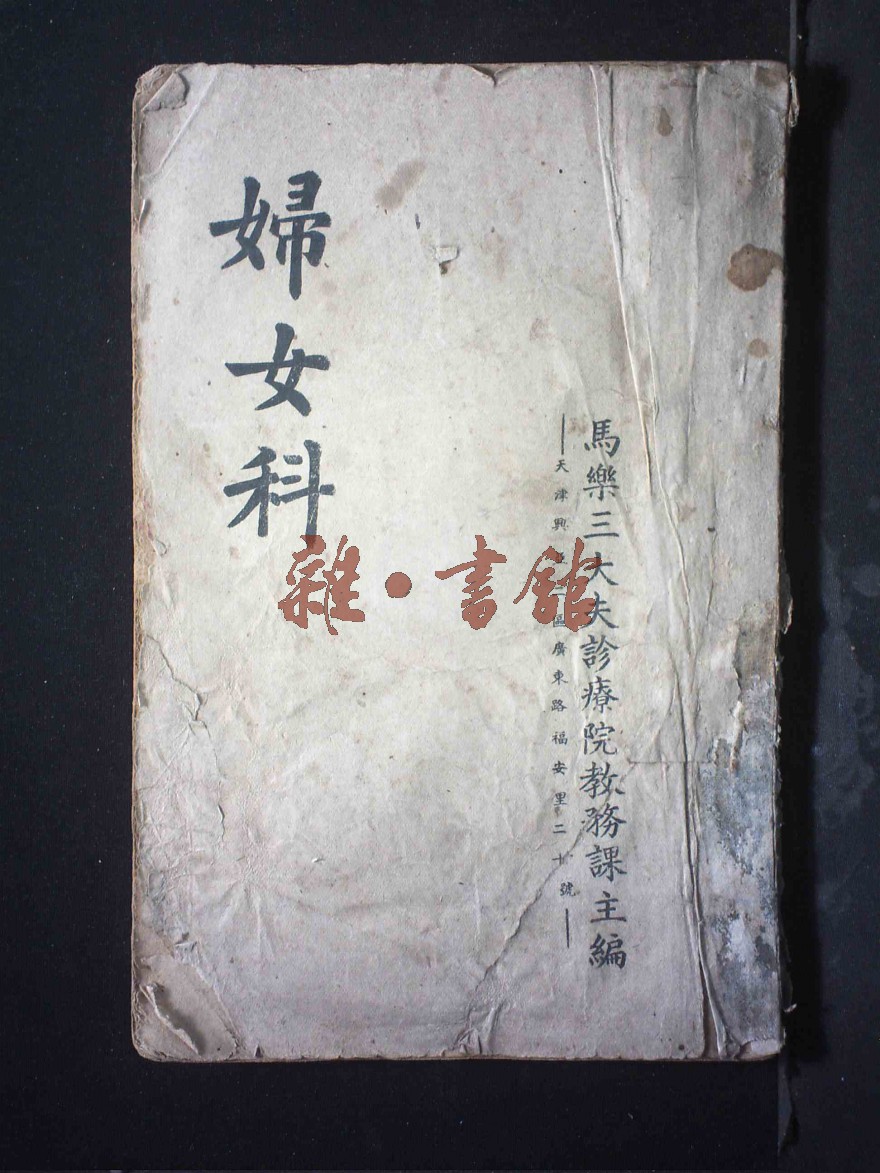 馬樂三大夫診療院教務課主編
天津興 區廣東路福安里二十號
婦女科
雜·書館